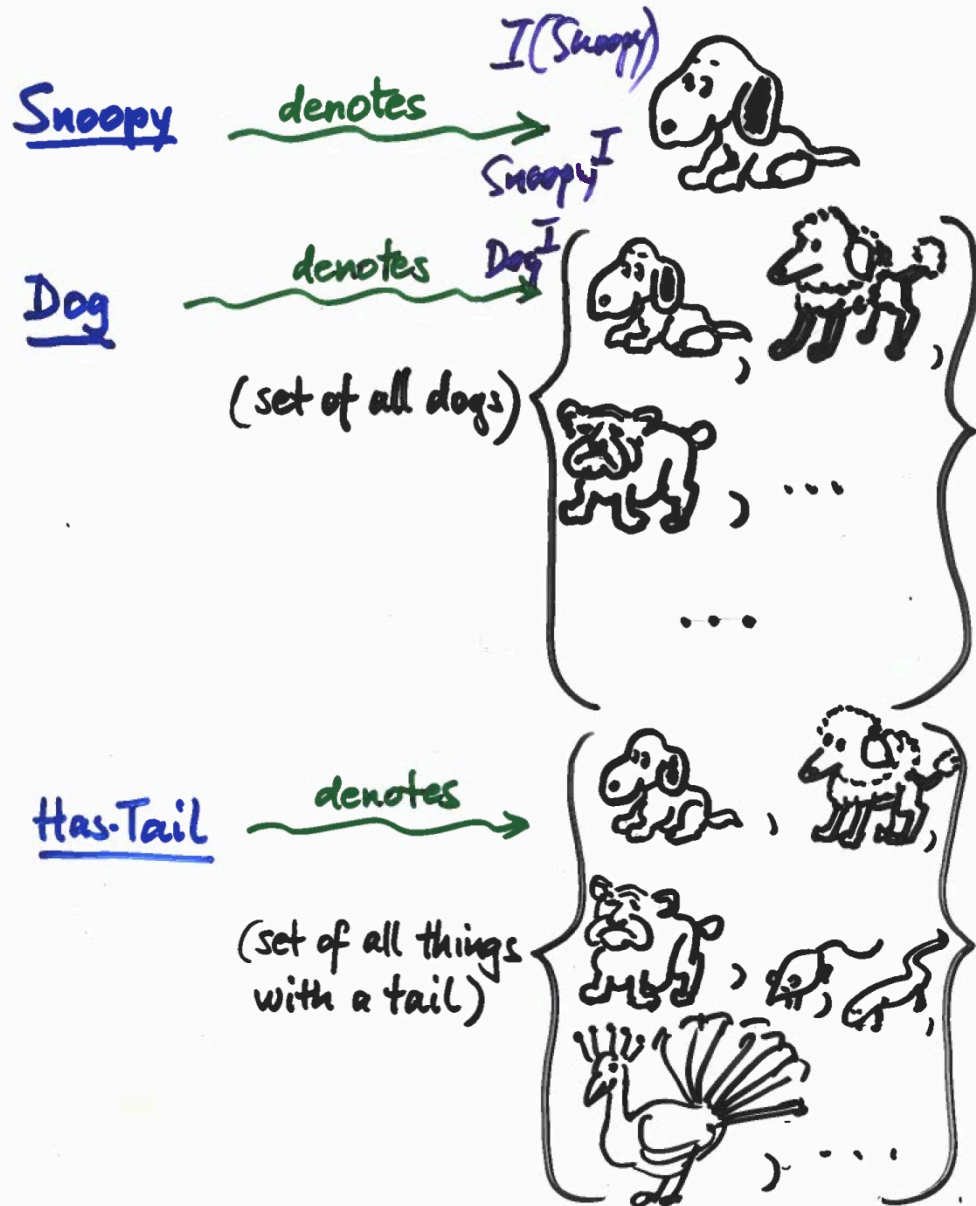 I(Snoopy)
Snoopy denotes
Snoopy^I
Dog denotes Dog^I
(set of all dogs) { , ,
, ...
... }
Has-Tail denotes {
, ,
(set of all things , , ,
with a tail)
, ... }